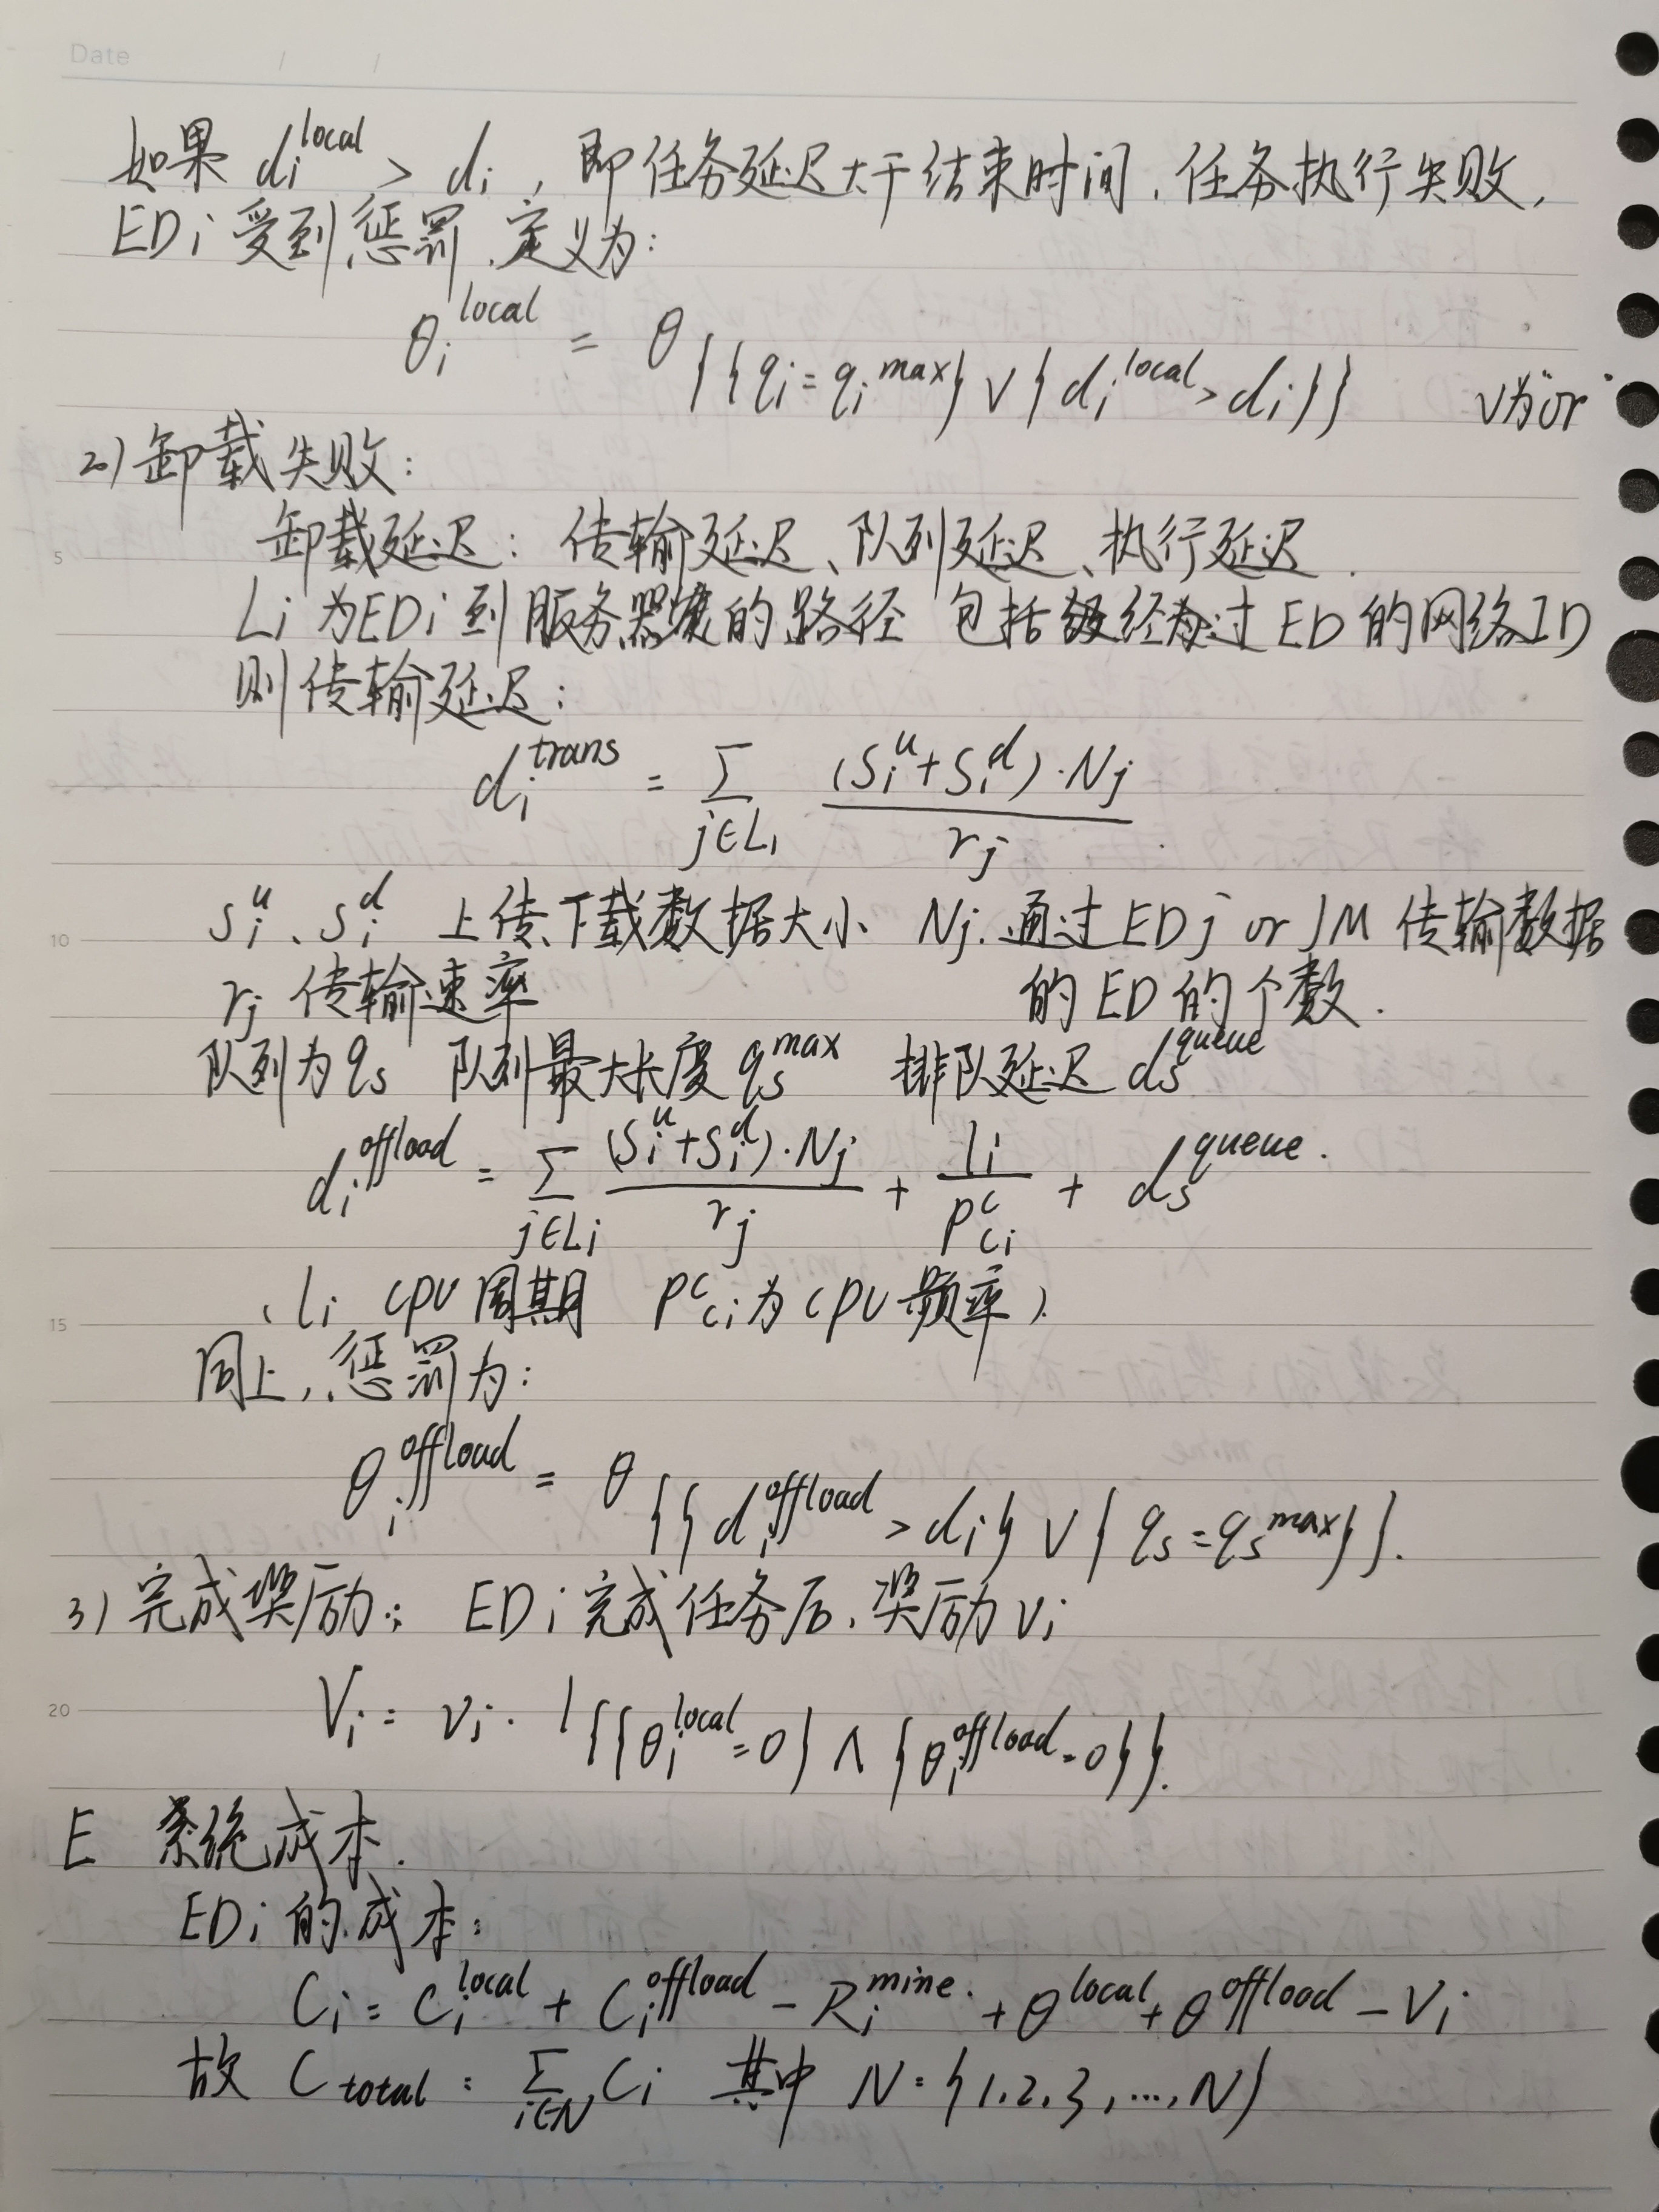 Date / /
如果 d_i^{local} > d_i , 即任务延迟大于结束时间, 任务执行失败,
EDi 受到惩罚, 定义为:
θ_i^{local} = θ_{\{\{q_i = q_i^{max}\} ∨ \{d_i^{local} > d_i\}\}} ∨为"or"
2) 卸载失败:
卸载延迟: 传输延迟、队列延迟、执行延迟.
Li 为EDi到服务器的路径 包括经过ED的网络ID
5
则传输延迟:
d_i^{trans} = \sum_{j∈L_i} \frac{(S_i^u + S_i^d)·N_j}{r_j}
S_i^u、S_i^d 上传、下载数据大小 Nj. 通过EDj or JM 传输数据
10
rj 传输速率 的ED的个数.
队列为 q_s 队列最大长度 q_s^{max} 排队延迟 d_s^{queue}
d_i^{offload} = \sum_{j∈L_i} \frac{(S_i^u + S_i^d)·N_j}{r_j} + \frac{l_i}{p_{c_i}^c} + d_s^{queue}.
(l_i CPU周期 p_{c_i}^c 为CPU频率).
15
同上, 惩罚为:
θ_i^{offload} = θ_{\{\{d_i^{offload} > d_i\} ∨ \{q_s = q_s^{max}\}\}}.
3) 完成奖励: EDi完成任务后, 奖励 v_i
V_i = v_i · 1_{\{\{θ_i^{local} = 0\} ∧ \{θ_i^{offload} = 0\}\}}.
20
E 系统成本.
EDi 的成本:
C_i = C_i^{local} + C_i^{offload} - R_i^{mine} + θ^{local} + θ^{offload} - V_i
故 C_{total} = \sum_{i∈N} C_i 其中 N = {1,2,3,...,N}